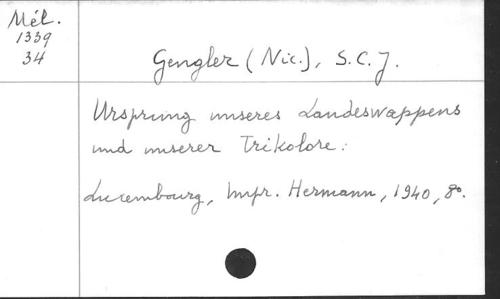 Mél.
1339
34
Gengler (Nic.), S.C.J.
Ursprung unseres Landeswappens
und unserer Trikolore.
Luxembourg, Impr. Hermann, 1940, 8°.